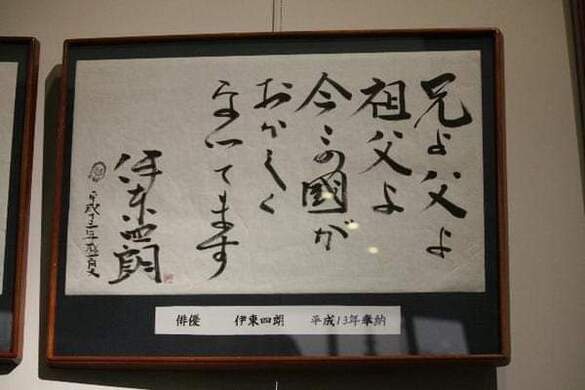 兄よ父よ
祖父よ
今この國が
おかしく
なってます
伊東四朗
平成十三年
俳優 伊東四朗 平成13年奉納